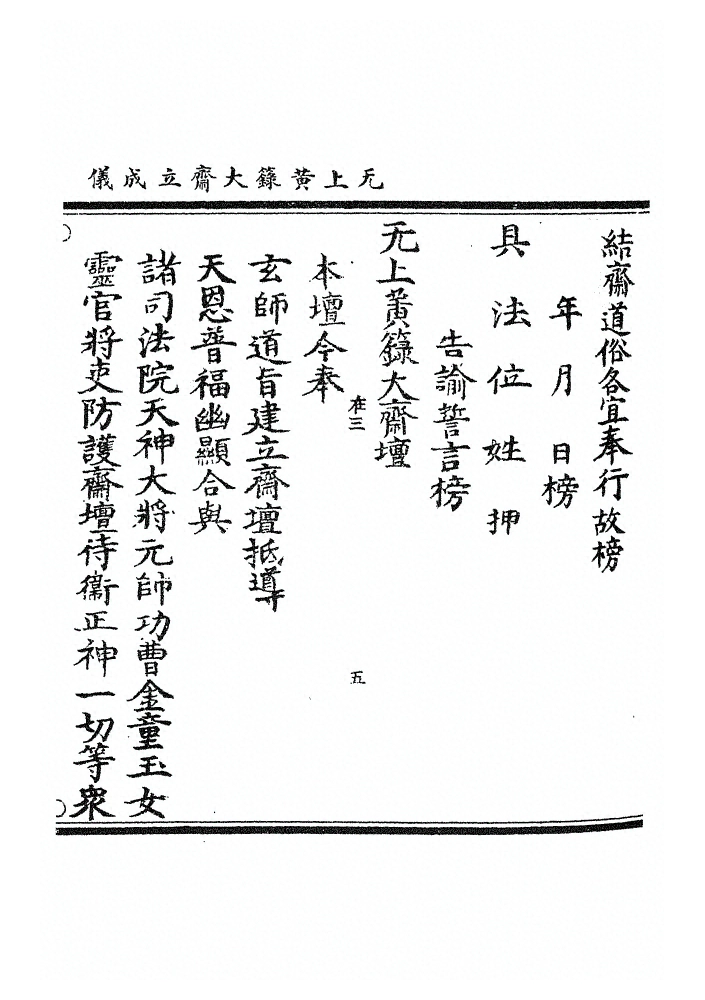 无上黄籙大齋立成儀
結齋道俗各宜奉行故榜
年月日榜
具法位姓押
告諭誓言榜
无上黄籙大齋壇
本壇今奉
在三
五
玄師道旨建立齋壇抵導
天恩普福幽顯合與
諸司法院天神大將元帥功曹金童玉女
靈官將吏防護齋壇待衞正神一切等衆